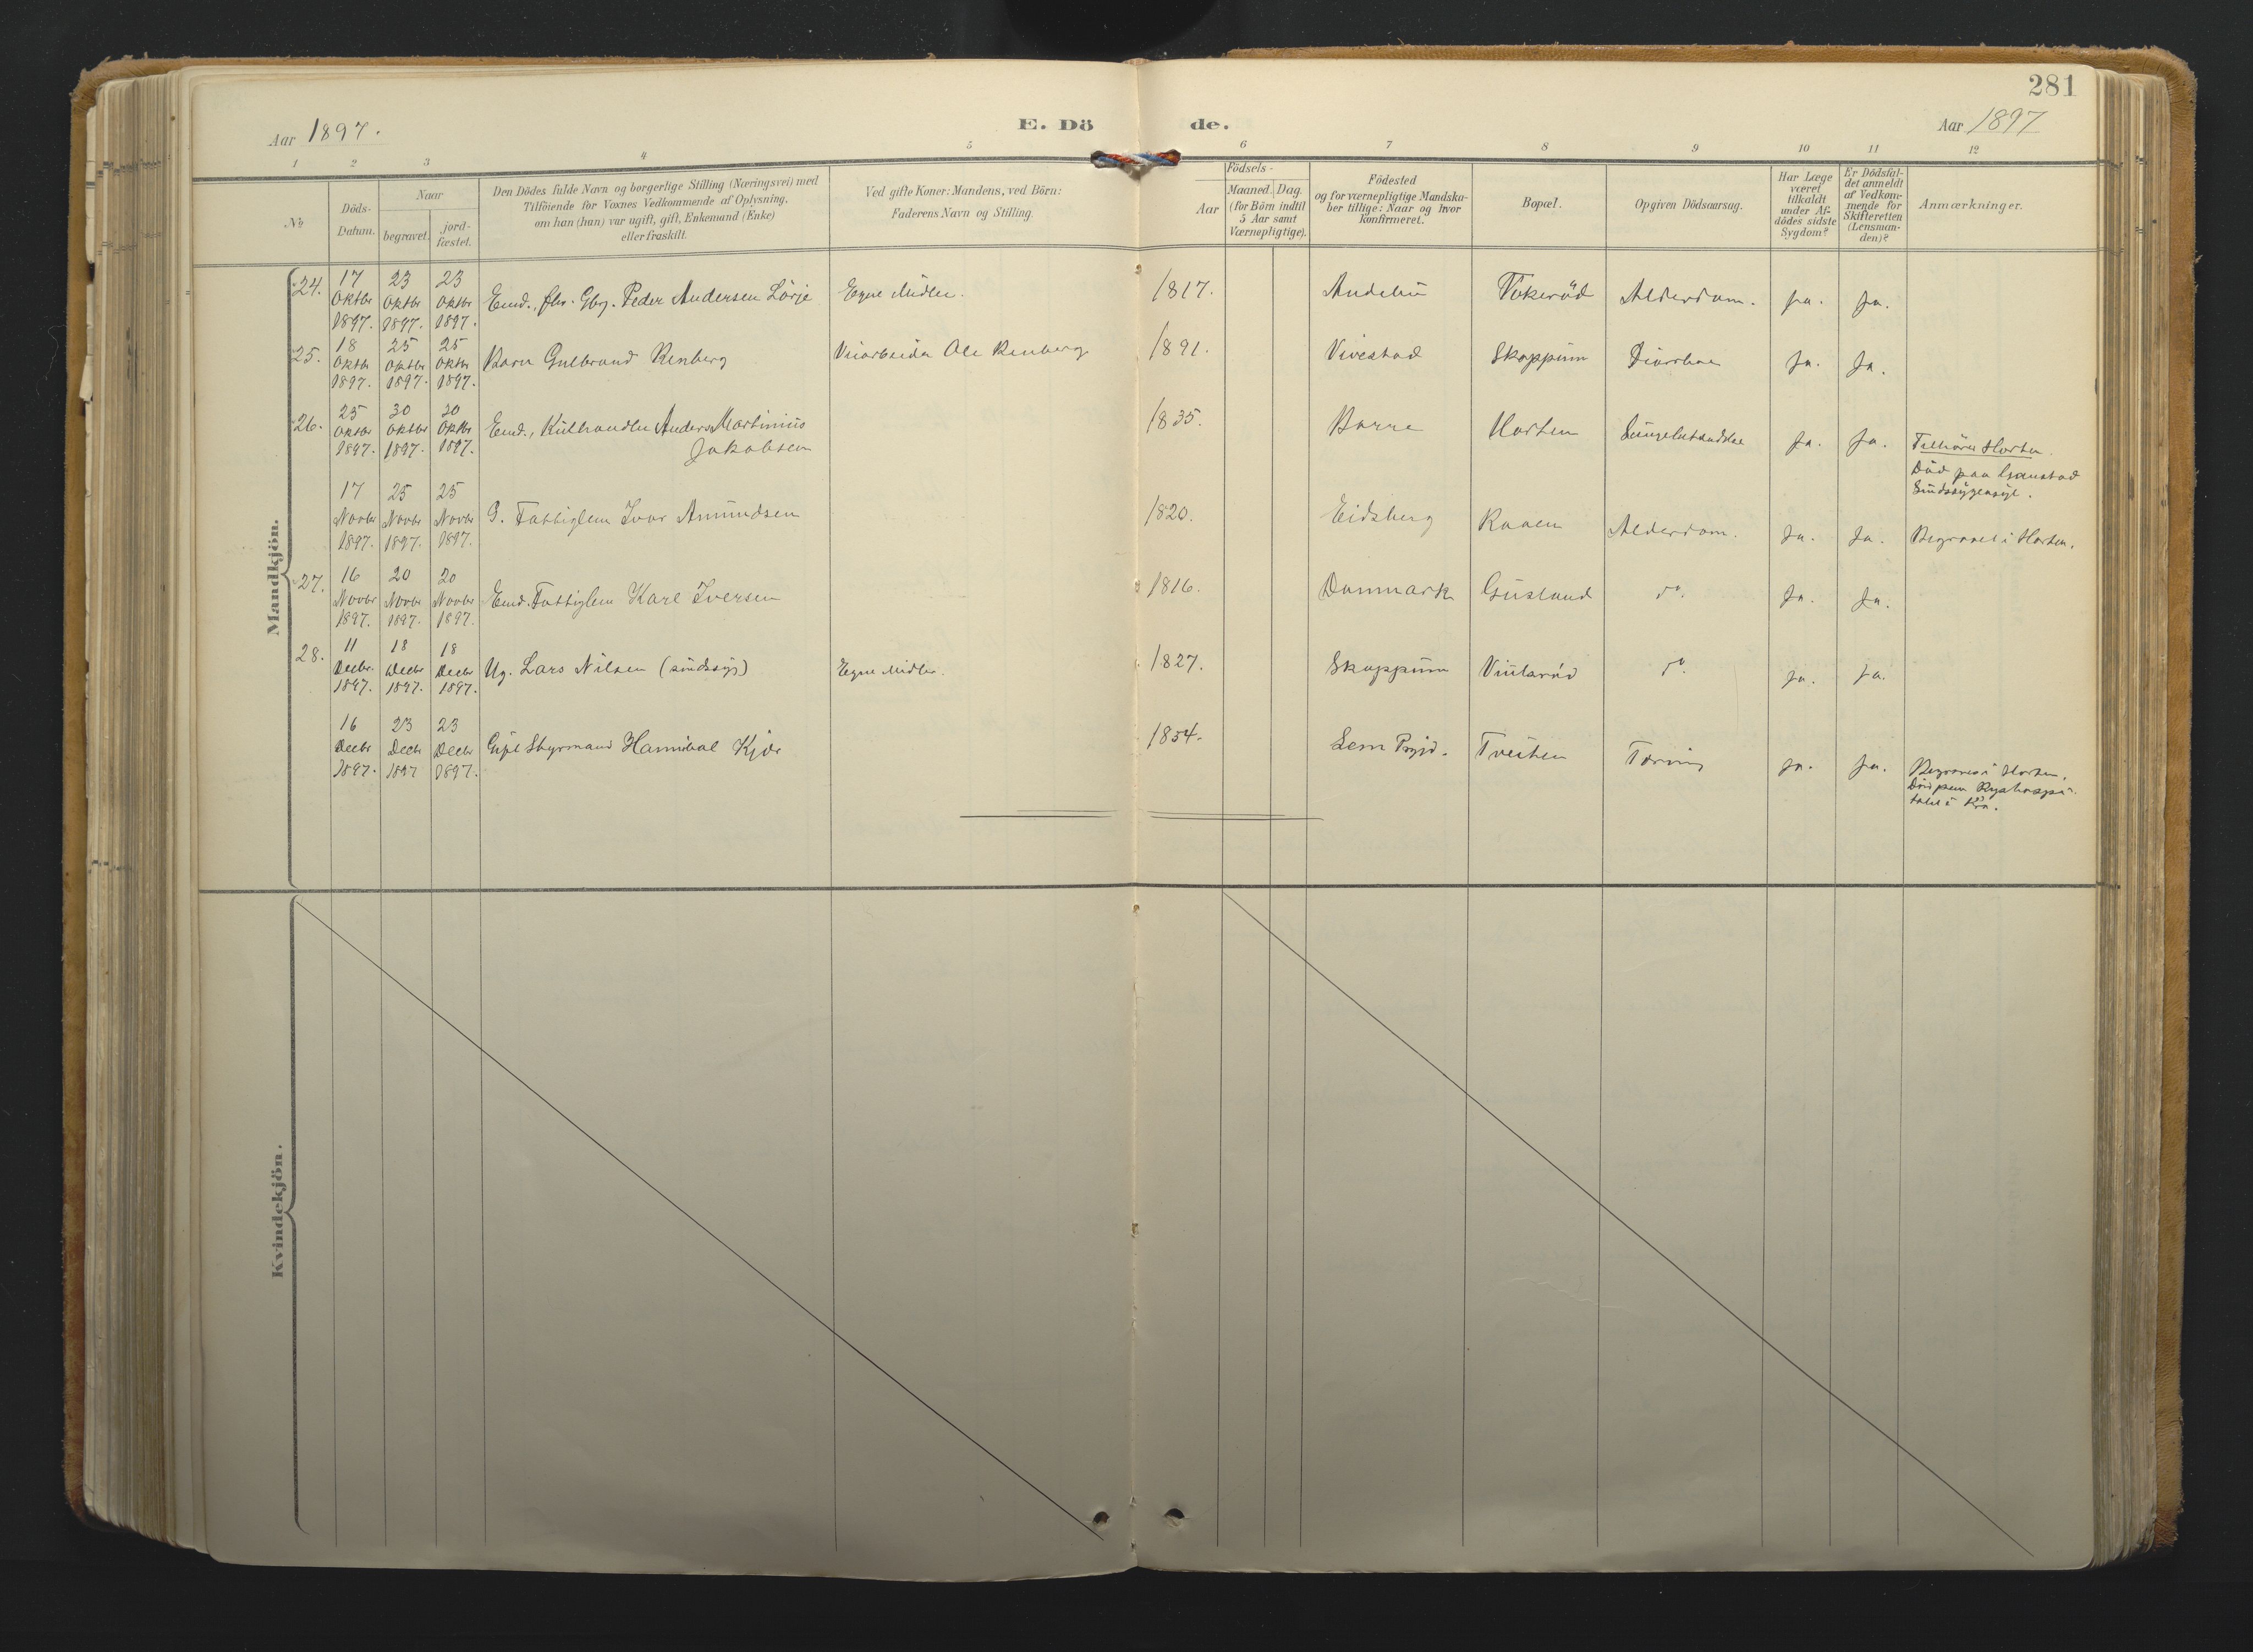 281
Aar 1897.
E. Dö de.
Aar 1897
1 2 3 4 5 6 7 8 9 10 11 12
№
Döds-
Datum.
Naar
begravet.
jord-
fæstet.
Den Dödes fulde Navn og borgerlige Stilling (Næringsvei) med
Tilföiende for Voxnes Vedkommende af Oplysning,
om han (hun) var ugift, gift, Enkemand (Enke)
eller fraskilt.
Ved gifte Koner: Mandens, ved Börn:
Faderens Navn og Stilling.
Födsels-
Aar
Maaned. Dag.
(for Börn indtil
5 Aar samt
Værnepligtige).
Födested
og for værnepligtige Mandska-
ber tillige: Naar og hvor
Konfirmeret.
Bopæl.
Opgiven Dödsaarsag.
Har Læge
været
tilkaldt
under Af-
dödes sidste
Sygdom?
Er Dödsfal-
det anmeldt
af Vedkom-
mende for
Skifteretten
(Lensman-
den)?
Anmærkninger.
Mandkjön.
24. 17 Oktbr 1897. 23 Oktbr 1897. 23 Oktbr 1897. Emd., fhv. Gbr. Peder Andersen Lörje Egne Midler. 1817. Andebu Tokeröd Alderdom. ja. ja.
25. 18 Oktbr 1897. 25 Oktbr 1897. 25 Oktbr 1897. Barn Gulbrand Renberg Veiarbeider Ole Renberg 1891. Vivestad Skoppum Diarrhae ja. Ja.
26. 25 Oktbr 1897. 30 Oktbr 1897. 30 Oktbr 1897. Emd., Kulhandler Anders Martinius
Jakobsen
1835. Borre Horten Lungebetændelse ja. ja. Tilhörer Horten.
Död paa Gaustad
Sindssygeasyl.
17 Novbr 1897. 25 Novbr 1897. 25 Novbr 1897. G. Fattiglem Ivar Amundsen 1820. Eidsberg Raaen Alderdom. Ja. Ja. Begravet i Horten.
27. 16 Novbr 1897. 20 Novbr 1897. 20 Novbr 1897. Emd. Fattiglem Karl Iversen 1816. Danmark Gusland do. Ja. Ja.
28. 11 Decbr. 1897. 18 Decbr 1897. 18 Decbr 1897. Ug. Lars Nilsen (sindssyg) Egne Midler. 1827. Skoppum do ja. ja.
16 Decbr 1897. 23 Decbr 1897 23 Decbr 1897. Gift Styrmand Hannibal Kjær 1854. Sem Prgjd. Tveiten Tæring ja. ja. Begravet i Horten.
Död paa Rigshospi-
talet i Kra.
Kvindekjön.